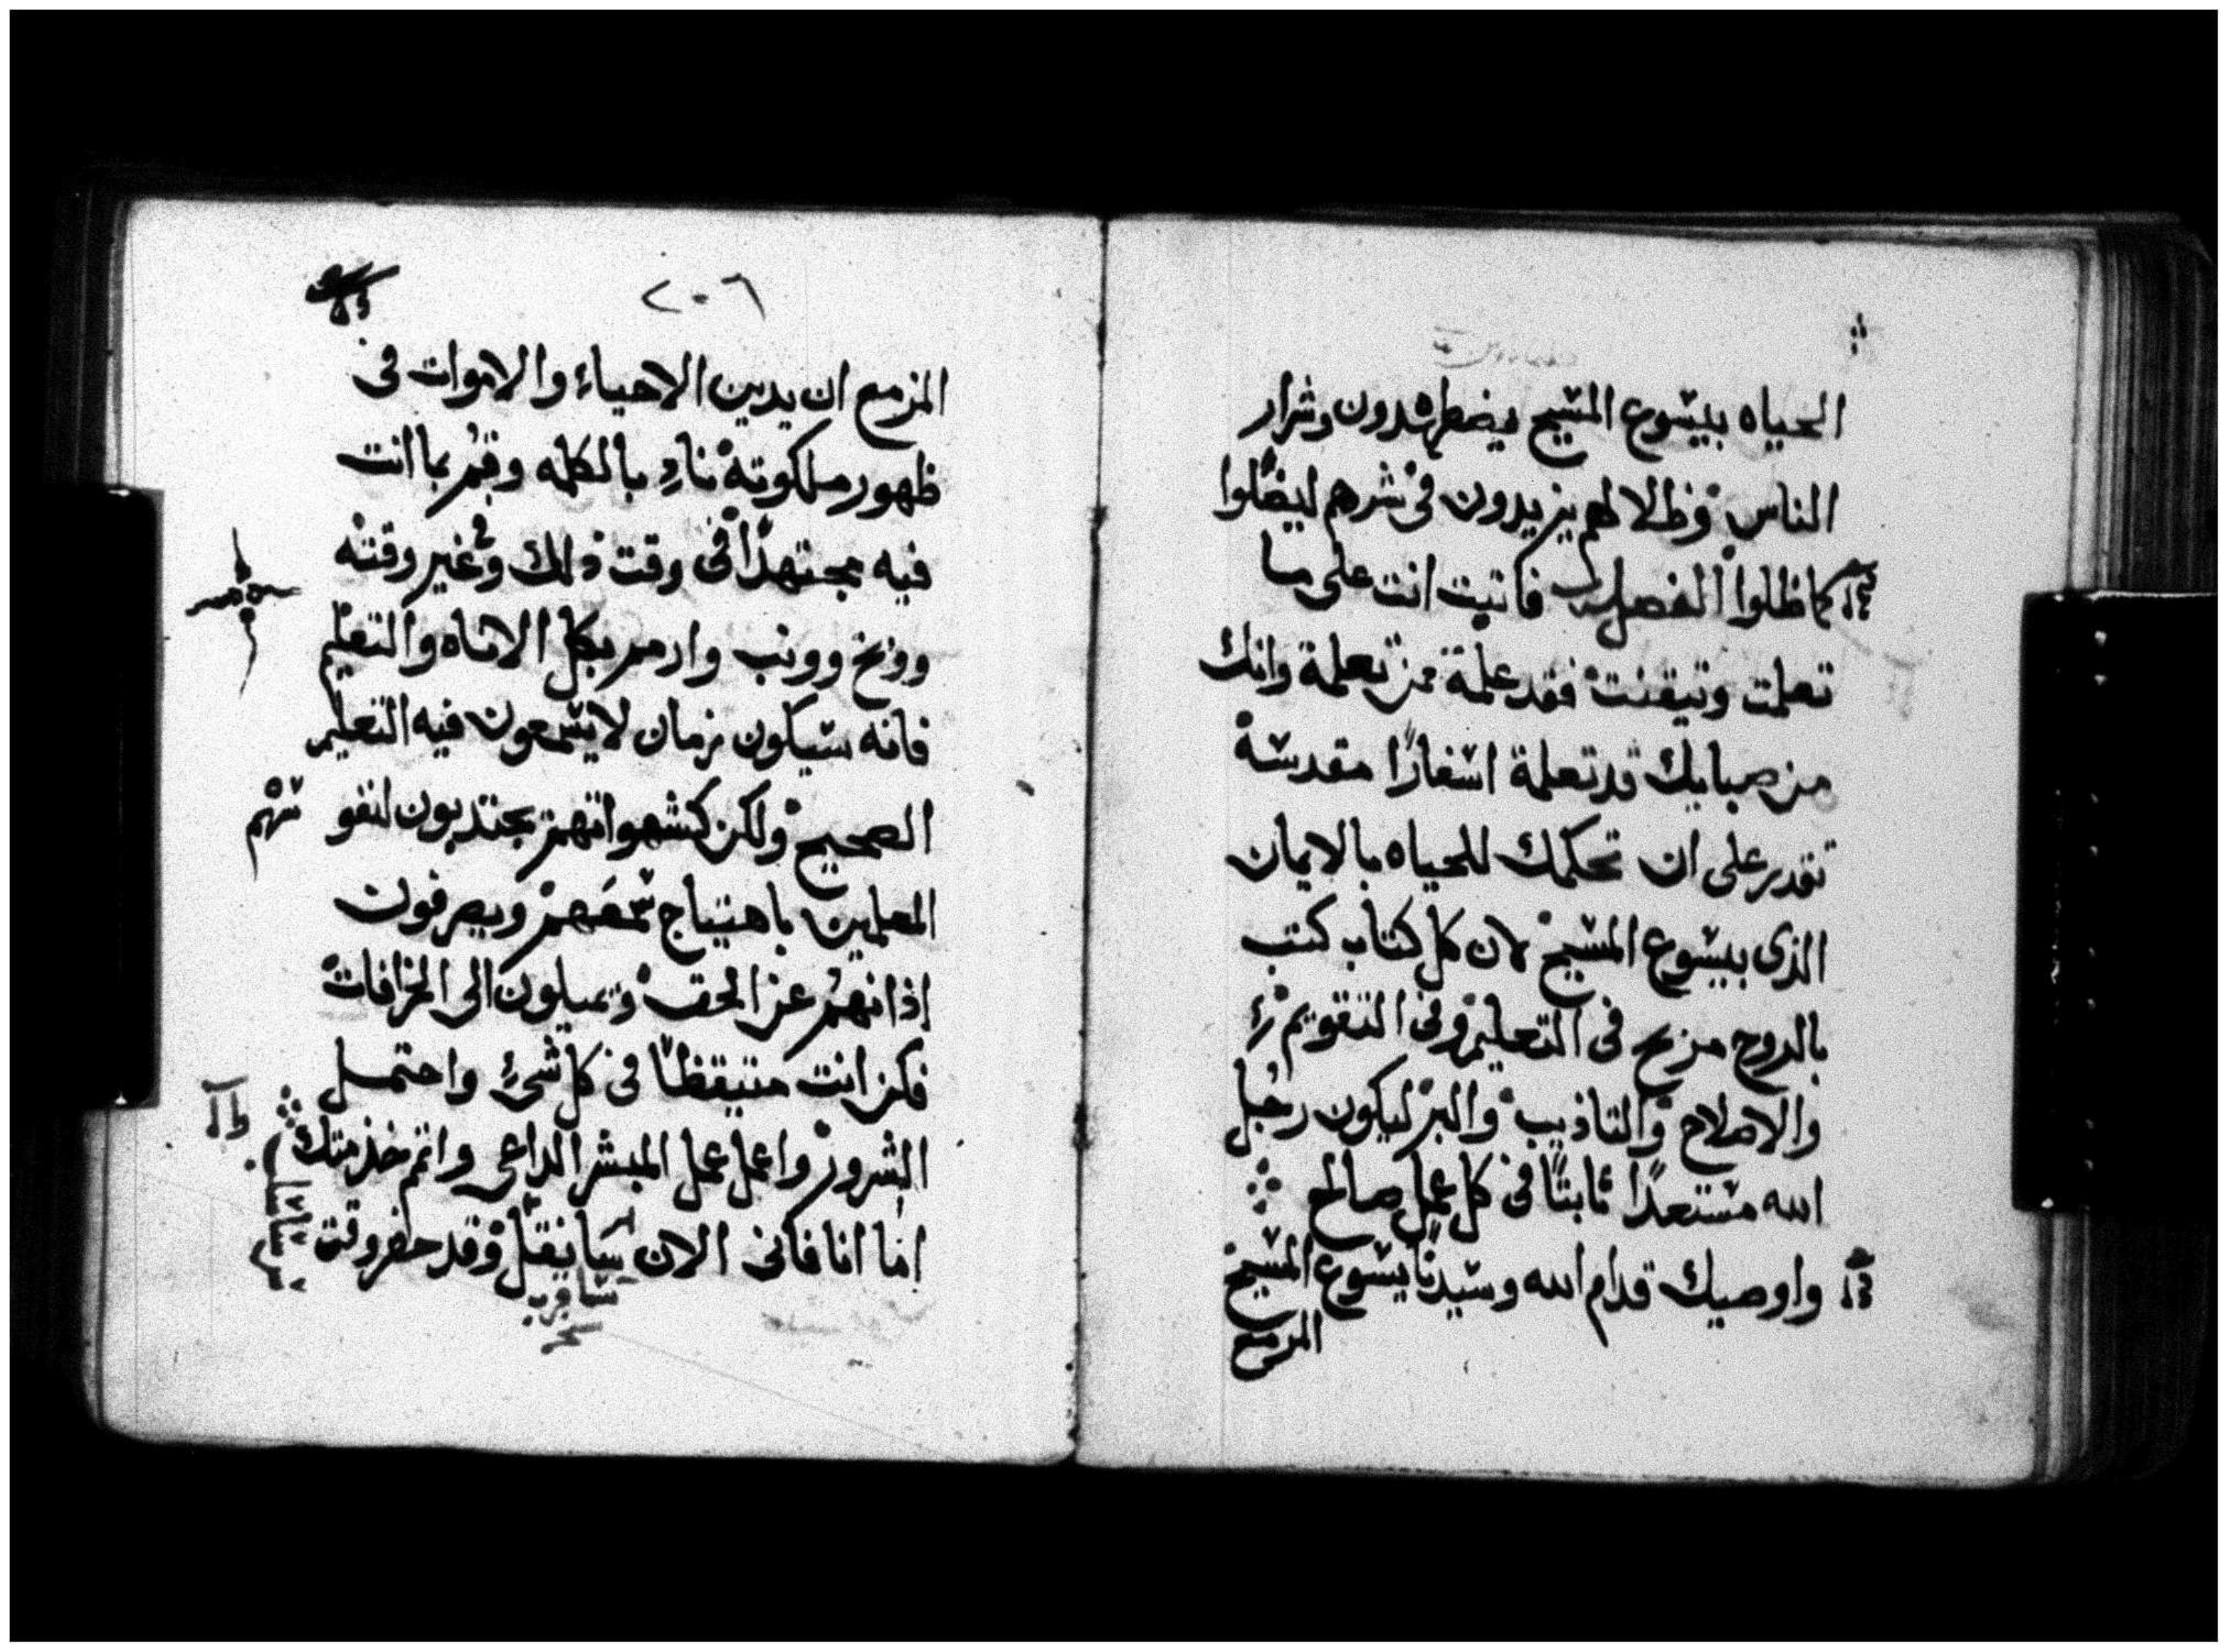 الحياه بيسوع المسيح يضطهدون وشرار
الناس وظلالهم يزيدون في شرهم ليضلوا
كما ظلوا الفصل فاتبت انت على ما
تعلمت وتيقنت فقد علمة ممن تعلمة وانك
من صبايك قد تعلمة اسفارًا مقدسة
تقدر على ان تحكمك للحياه بالايمان
الذى بيسوع المسيح لان كل كتاب كتب
بالروح مزبح فى التعليم وفى التقويم
والاصلاح والتاذيب والبر ليكون رجل
الله مستعدًا ثابتًا فى كل عمل صالح
واوصيك قدام الله وسيدنا يسوع المسيح
المزمع
٢٠٦
المزمع ان يدين الاحياء والاموات فى
ظهور ملكوته نادِ بالكلمه وقم بما انت
فيه مجتهدًا فى وقت ذلك وفي غير وقته
ووبخ وونب وازمر بكل الاناه والتعليم
فانه سيكون زمان لا يسمعون فيه التعليم
الصحيح ولكن كشهواتهم يجتذبون لنفو سهم
المعلمين باهتياج سمعهم ويصرفون
اذانهم عن الحق ويميلون الى الخرافات
فكن انت متيقظًا فى كل شىء واحتمل
الشرور واعمل عمل المبشر الداعى واتم خذمتك
اما انا فانى الان سانقل وقد حضر وقت
سافر